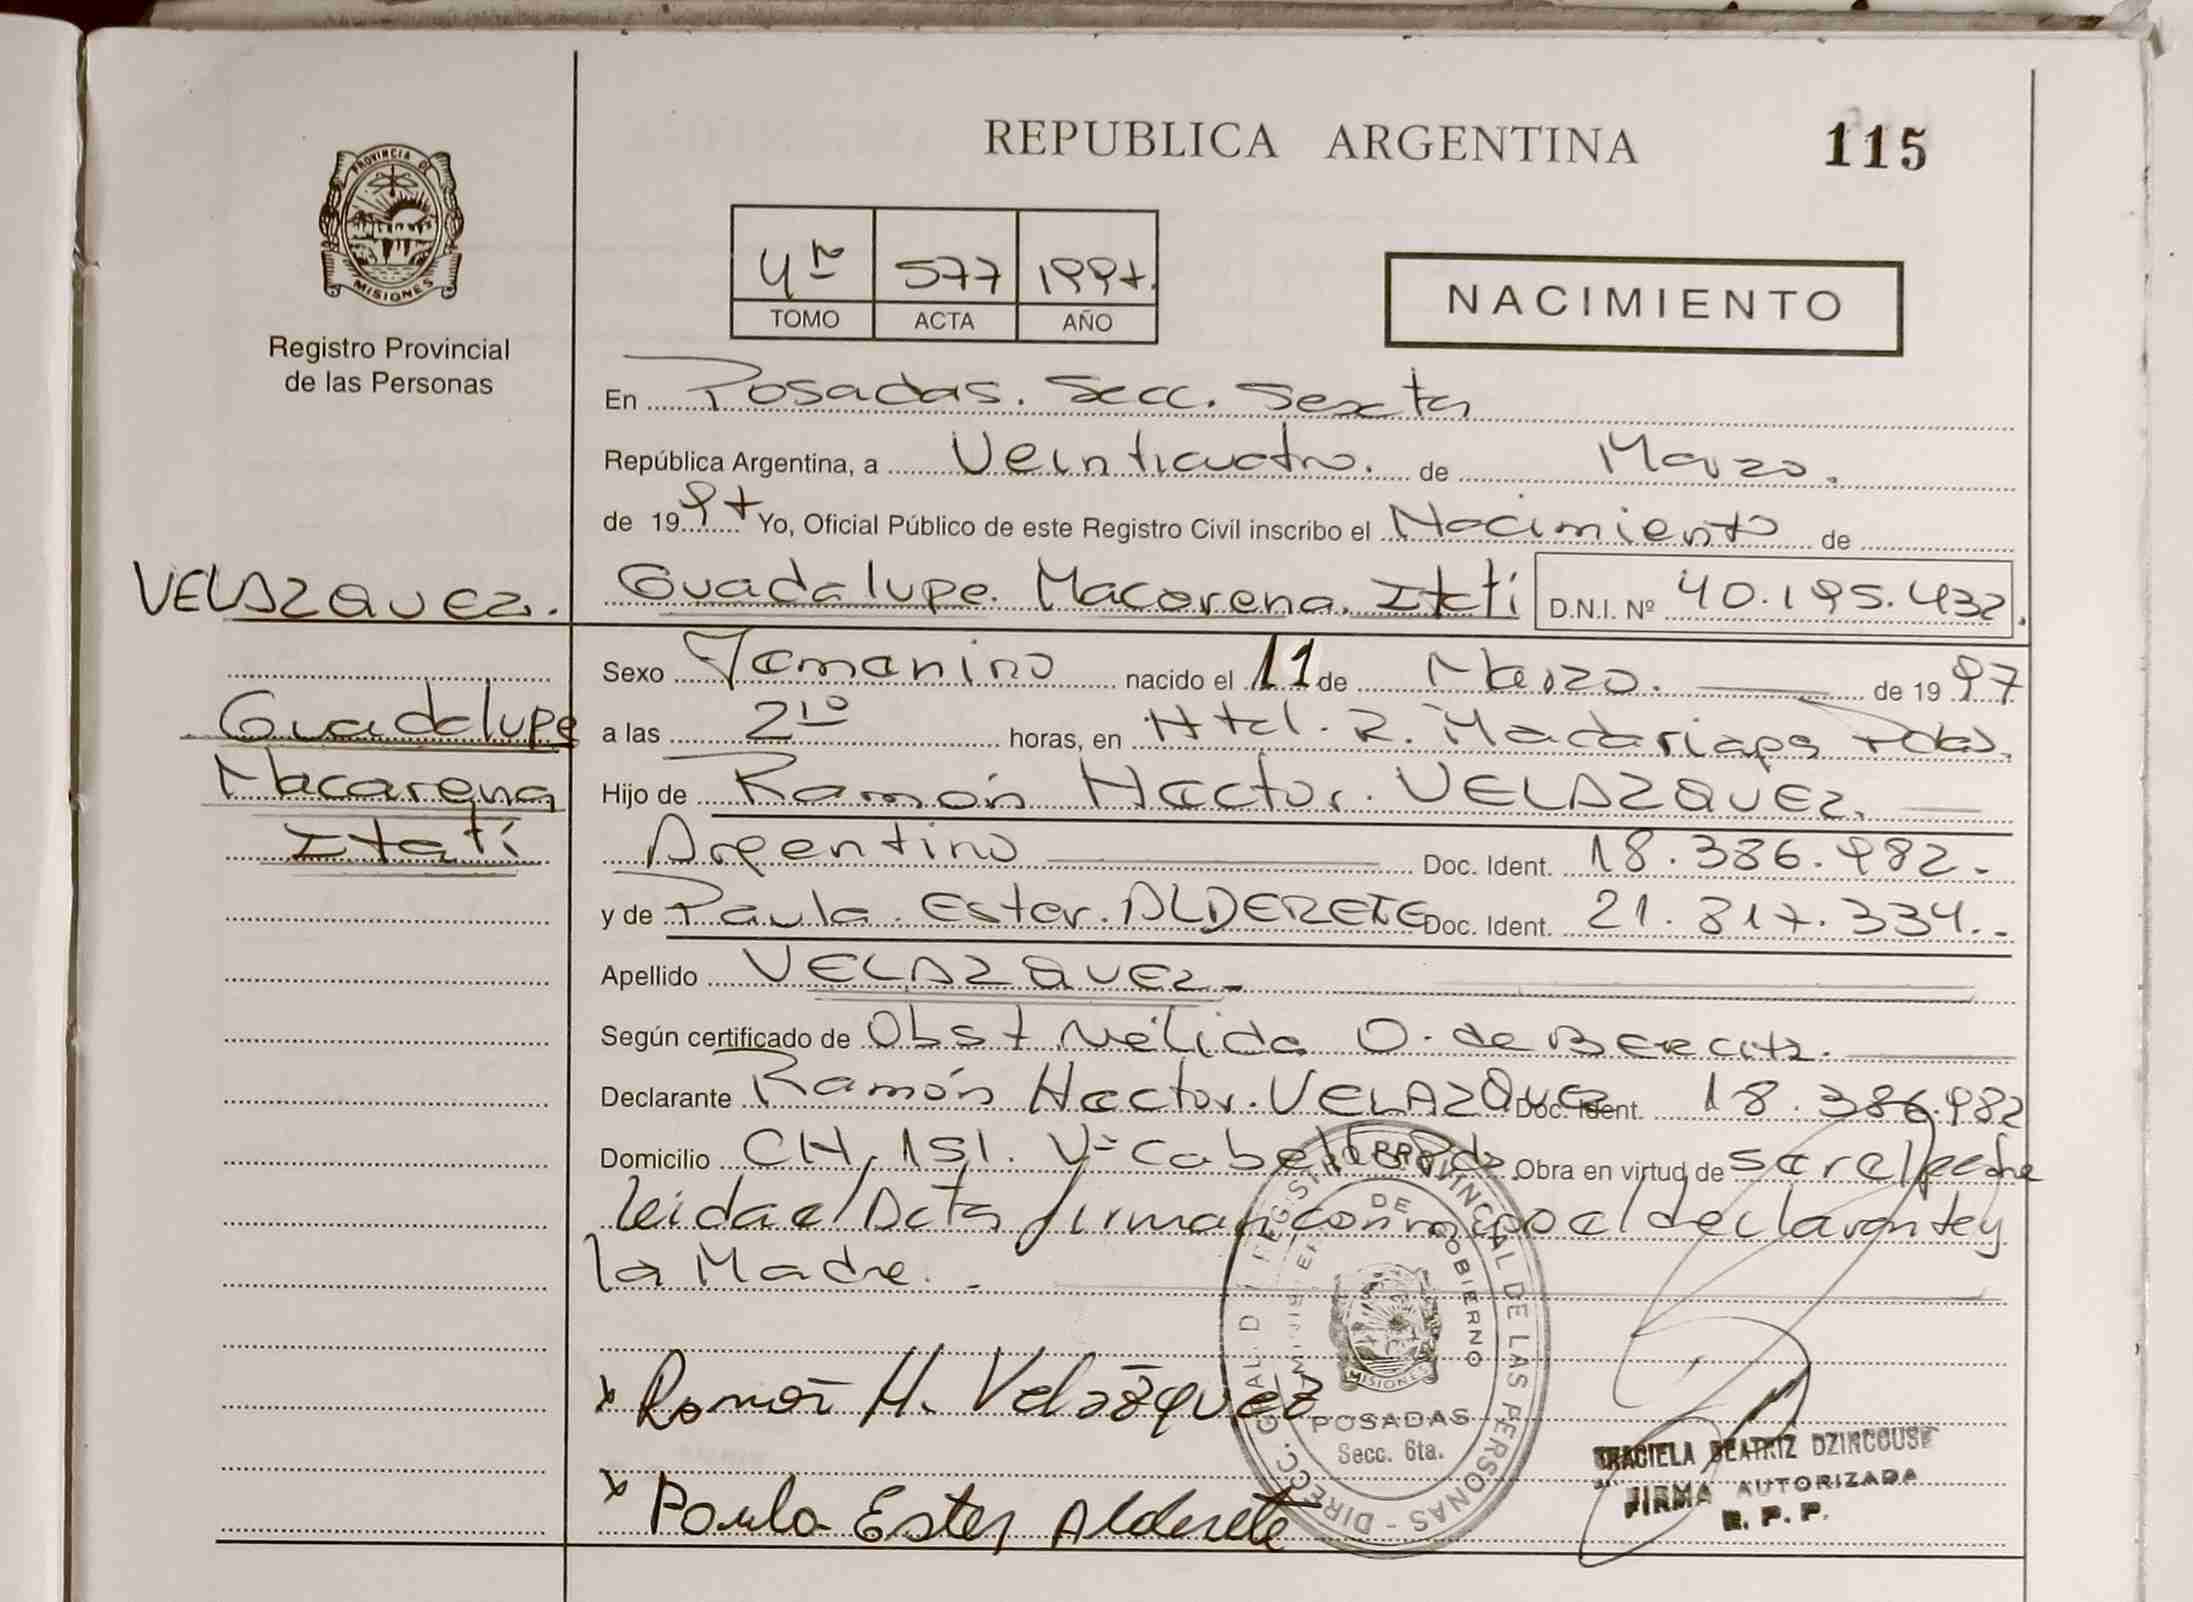 REPUBLICA ARGENTINA
115
PROVINCIA DE
MISIONES
Registro Provincial
de las Personas
4to 577 1997.
TOMO ACTA AÑO
NACIMIENTO
En Posadas. Secc. Sexta
República Argentina, a Veinticuatro. de Marzo.
de 1997 Yo, Oficial Público de este Registro Civil inscribo el Nacimiento de
VELAZQUEZ. Guadalupe. Macarena. Itatí D.N.I. Nº 40.195.432.
Sexo Femenino nacido el 11 de Marzo. de 1997
Guadalupe a las 21º horas, en Htal. R. Madariaga Pdas.
Macarena Hijo de Ramón Hector. VELAZQUEZ.
Itatí Argentino Doc. Ident. 18.386.982.-
y de Paula. Ester. ALDERETE Doc. Ident. 21.817.334.-
Apellido VELAZQUEZ.-
Según certificado de Obst Nélida O. de
Declarante Ramón Hector. VELAZQUEZ Doc. Ident. 18.386.982
Domicilio CH. 151. Vª Cabello Pdas. Obra en virtud de ser el padre
leida el Acta firman conmigo el declarante y
la Madre.-
Ramón H. Velázquez
Paula Ester Alderete
DIRECC. GRAL. D REGISTRO PROVINCIAL DE LAS PERSONAS -
MINISTERIO DE GOBIERNO
MISIONES
POSADAS
Secc. 6ta.
GRACIELA BEATRIZ
FIRMA AUTORIZADA
R. P. P.